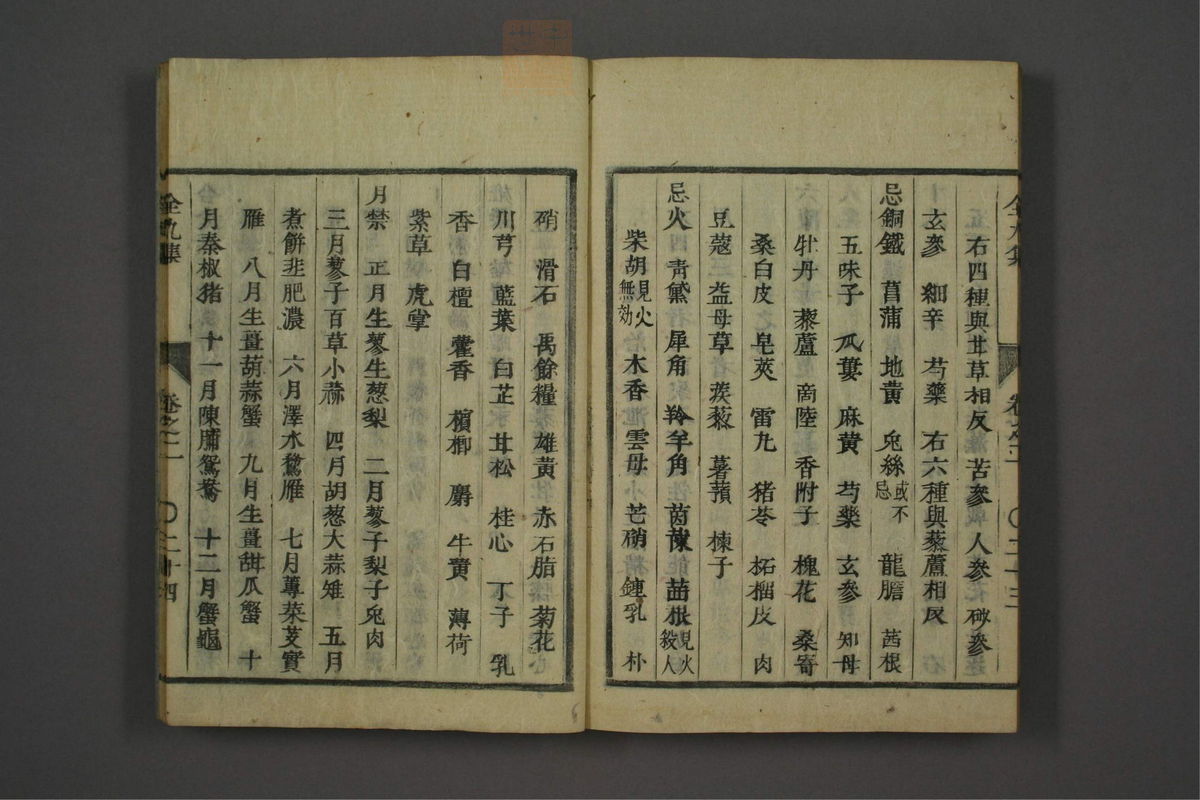 右四種與甘草相反 苦參 人參 砂參
玄參 細辛 芍藥 右六種與藜蘆相反
忌銅鐵 菖蒲 地黄 兎絲或不忌 龍膽 茜根
五味子 瓜蔞 麻黄 芍藥 玄參 知母
牡丹 藜蘆 商陸 香附子 槐花 桑寄
桑白皮 皂莢 雷丸 猪苓 柘榴皮 肉
豆蔻 益母草 蒺蔾 薯蕷 楝子
忌火 青黛 犀角 羚羊角 茵蔯 苗根見火殺人
柴胡見火無効 木香 雲母 芒硝 鍾乳 朴
硝 滑石 禹餘糧 雄黄 赤石脂 菊花
川芎 藍葉 白芷 甘松 桂心 丁子 乳
香 白檀 藿香 檳榔 麝 牛黄 薄荷
紫草 虎掌
月禁 正月生蓼生葱梨 二月蓼子梨子兎肉
三月蓼子百草小蒜 四月胡葱大蒜雉 五月
煮餅韭肥濃 六月澤水鶩雁 七月蓴菜芰實
雁 八月生薑葫蒜蟹 九月生薑甜瓜蟹 十
月秦椒猪 十一月陳脯鴛鴦 十二月蟹龜
全九集 卷之二 〇二十三
全九集 卷之二 〇二十四